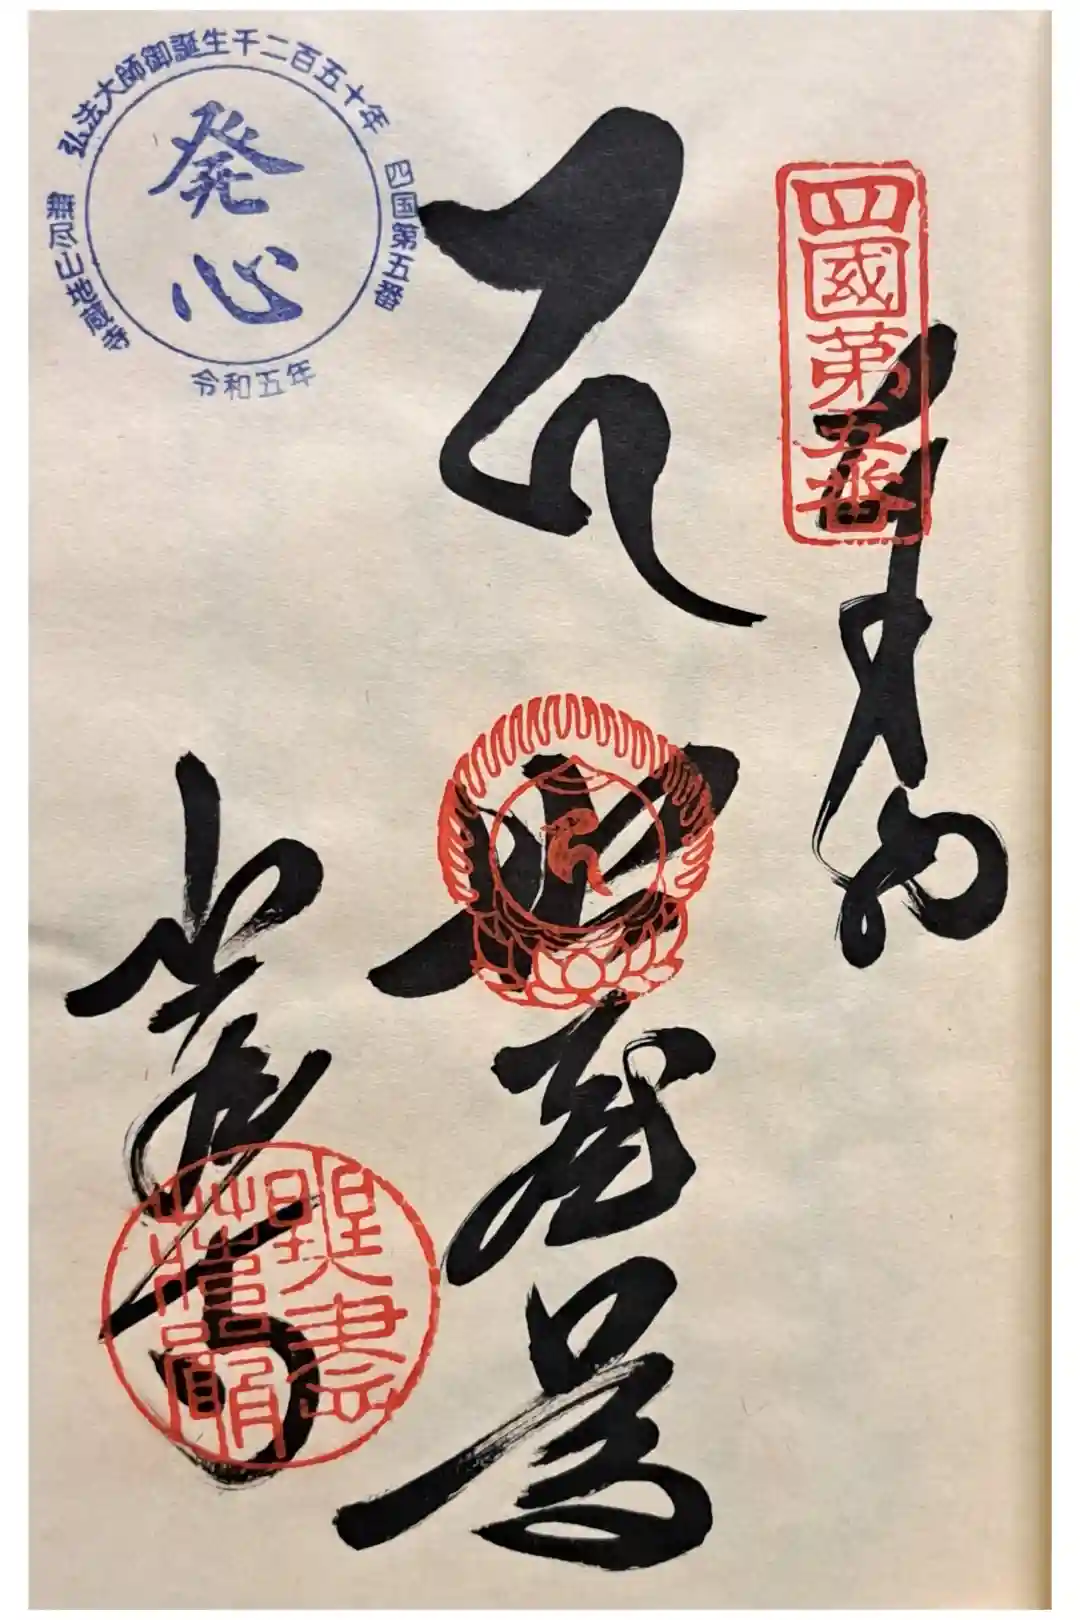 四國第五番
奉納
地蔵尊
地蔵寺
弘法大師御誕生千二百五十年
四国第五番
無尽山地蔵寺
発心
令和五年